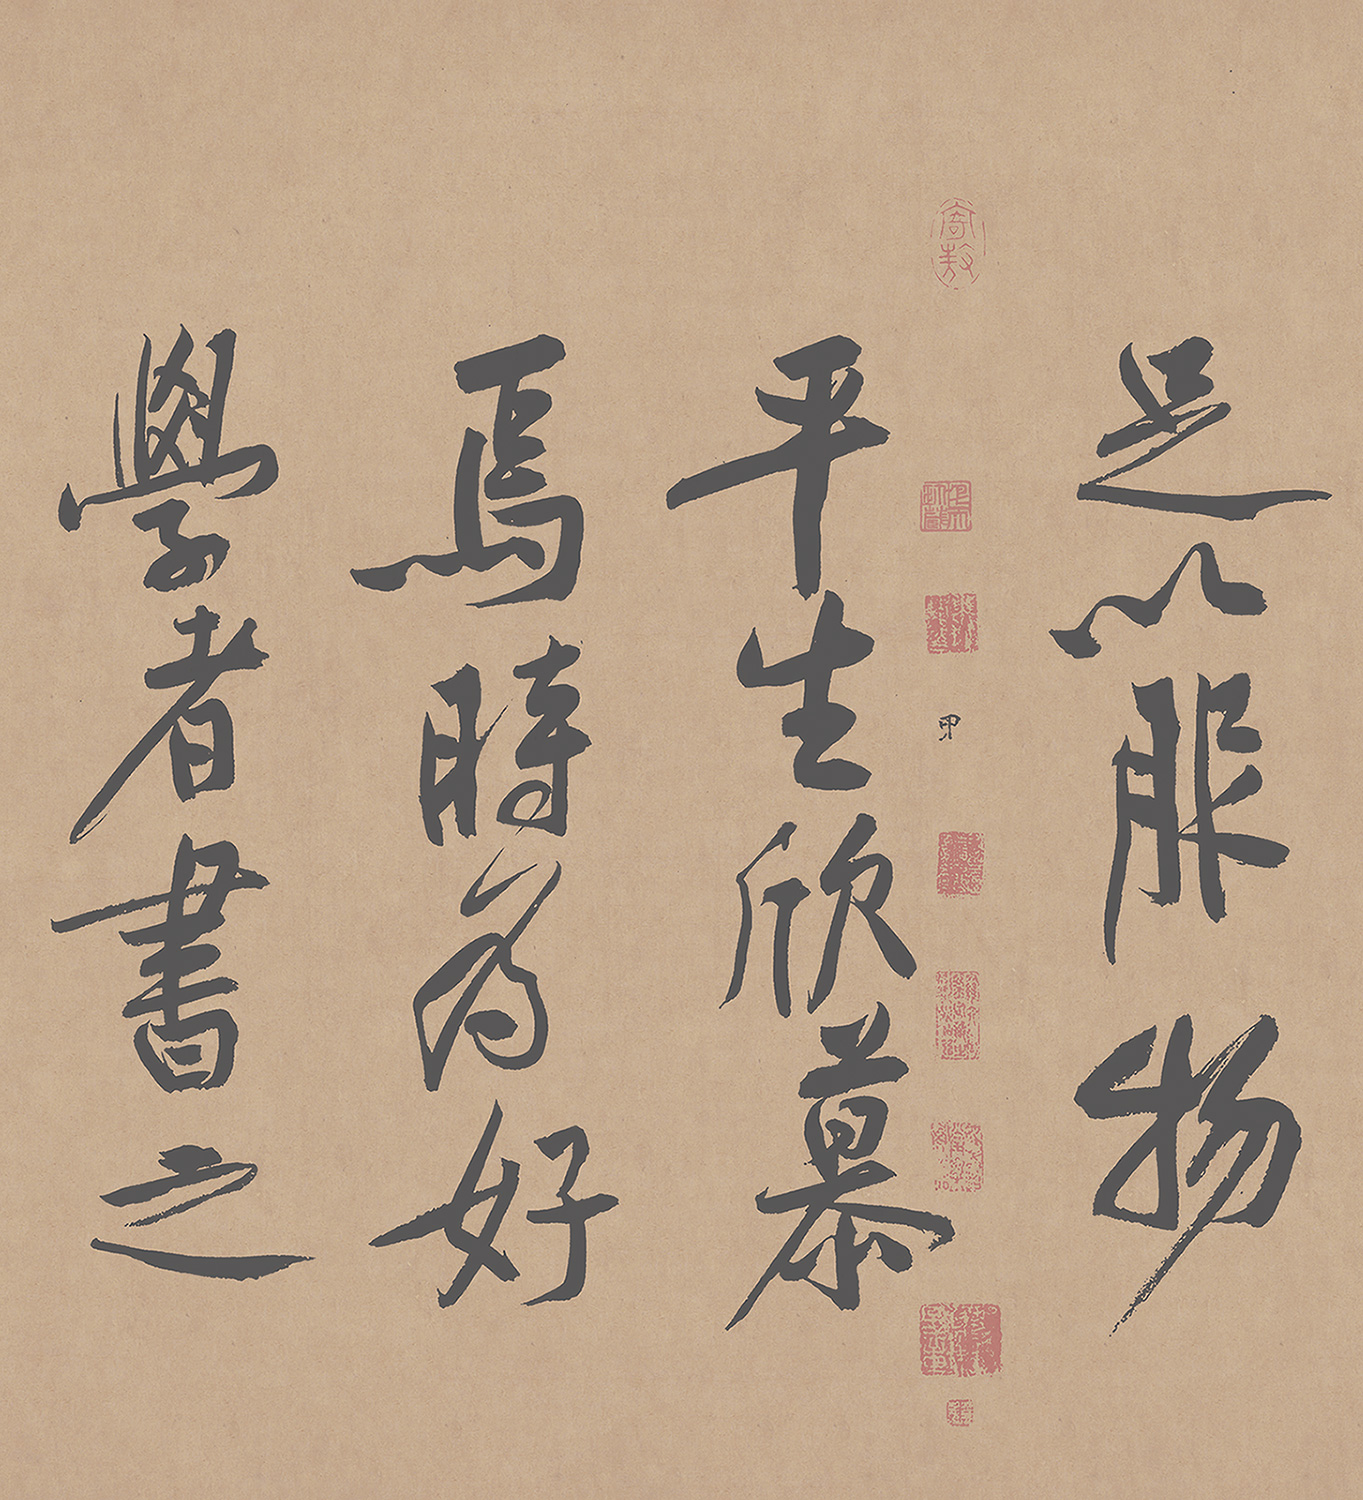 足以服物
平生欣慕
焉時爲好
學者書之
甲